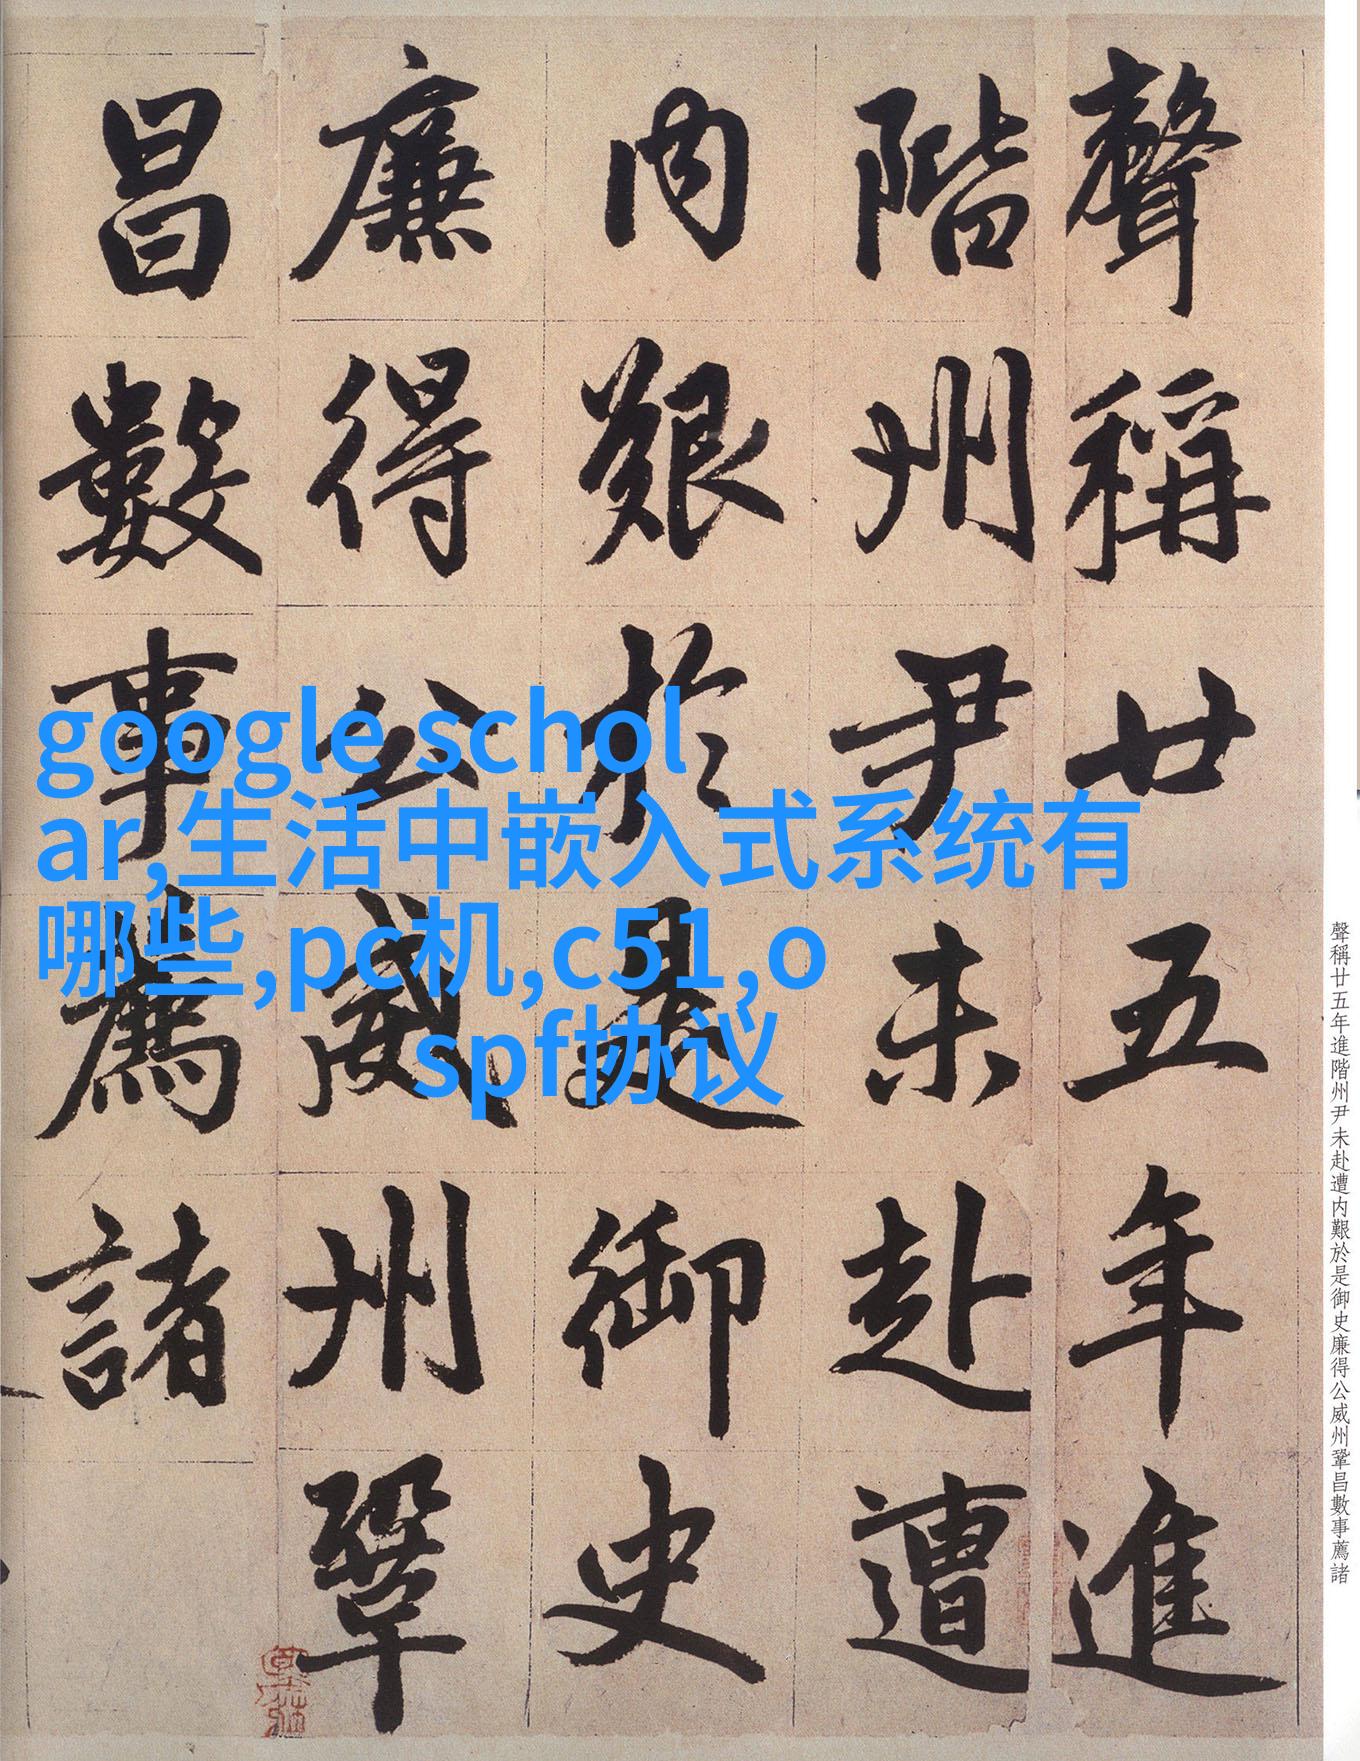 聲稱廿五年進
階州尹未赴遭
内艱於是御史
廉得公威州鞏
昌數事薦諸
google schol
ar,生活中嵌入式系统有
哪些,pc机,c51,o
spf协议
聲稱廿五年進階州尹未赴遭内艱於是御史廉得公威州鞏昌數事薦諸